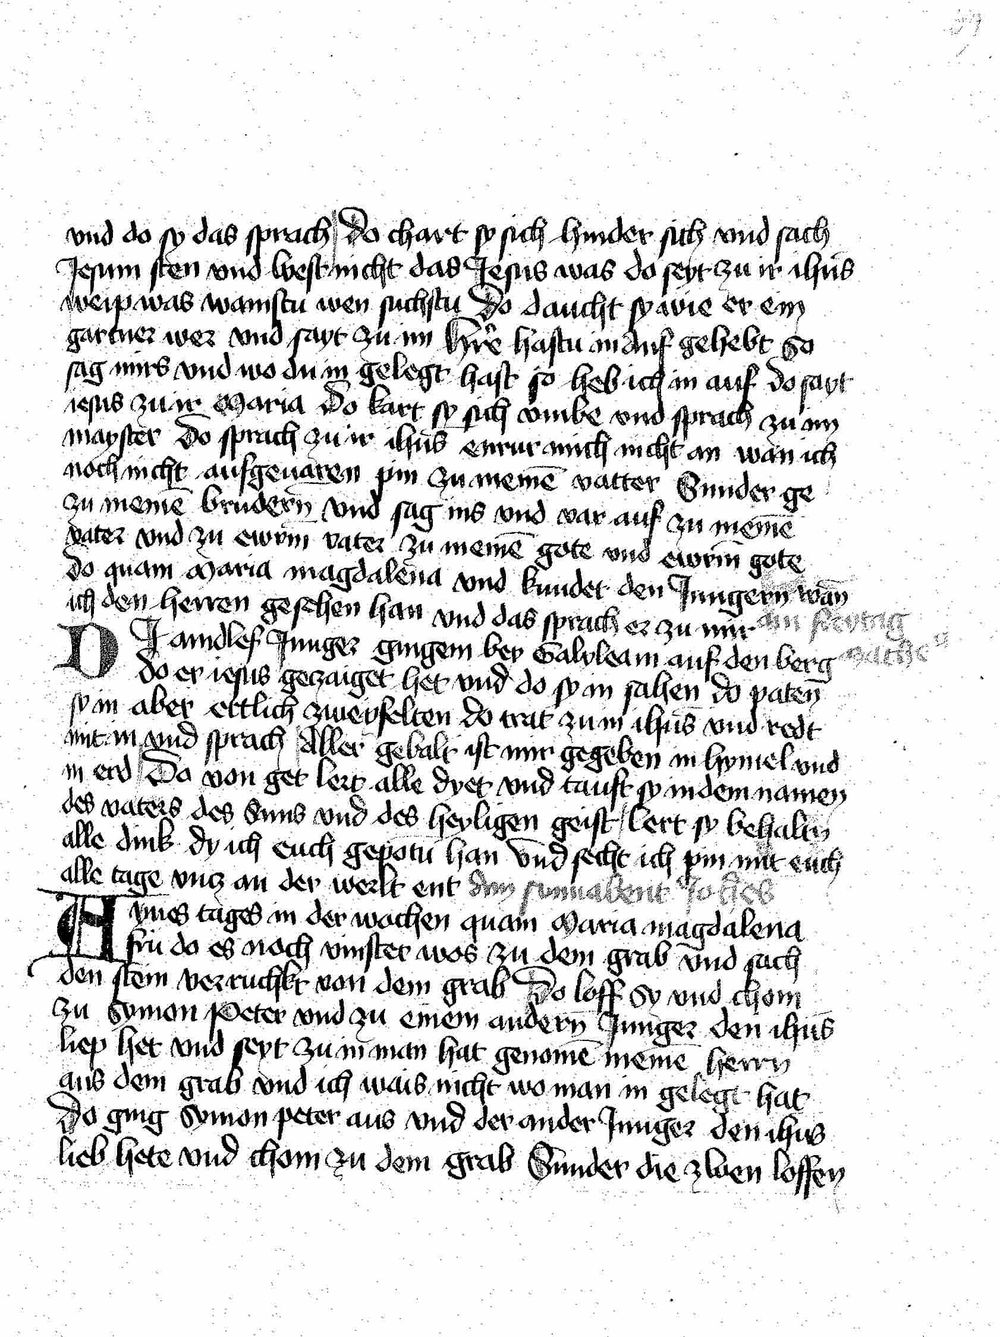 vnd do sy das sprach Do chart sy sich hinder sich vnd sach
Jesum sten vnd west nicht das Jesus was do seyt zu ir ihũs
weip was wainstu wen suchstu Do daucht sy wie er ein
gartner wer vnd sayt zu im hr̃e hastu in auf gehebt So
sag mirs vnd wo du in gelegt hast so heb ich in auf do sayt
iesus zu ir Maria Do kart sy sich vmbe vnd sprach zu im
mayster Do sprach zu ir ihũs enrur mich nicht an wan ich
noch nicht aufgeuaren pin zu meinē vatter Sunder ge
zu meinē brudern̄ vnd sag ins vnd var auf zu meinē
vater vnd zu ewrm̄ vater zu meinē gote vnd ewrm̄ gote
do quam Maria magdalena vnd kundet den Jungern̄ wan̄
ich den herren gesehen han vnd das sprach er zu mir am freytag
DI aindlef Junger gingen bey Galyleam auf den berg Mathe⁹
do er iesus geczaiget het vnd do sy in sahen do paten̄
sy in aber ettlich zweyfelten do trat zu in ihũs vnd redt
mit in vnd sprach Aller gebalt ist mir gegeben in hymel vnd
in erd Do von get lert alle dyet vnd tauft sy in dem namen
des vaters des Suns vnd des heyligen geist lert sy behaltn̄
alle dink dy ich euch gepotn̄ han vnd secht ich pin mit euch
alle tage vncz an der werlt ent Am sunnabent Joh̃es
AYnes tages in der wochen quam Maria magdalena
fru do es noch vinster wos zu dem grab vnd sach
den stein verruchkt von dem grab Do loff sy vnd chom
zu Symon Peter vnd zu einem andern̄ Junger den ihũs
liep het vnd seyt zu in man hat genomē meinē herrn
aus dem grab vnd ich wais nicht wo man in gelegt hat
Do ging Symon peter aus vnd der ander Junger den ihũs
lieb hete vnd chom zu dem grab Sunder die zwen loffen